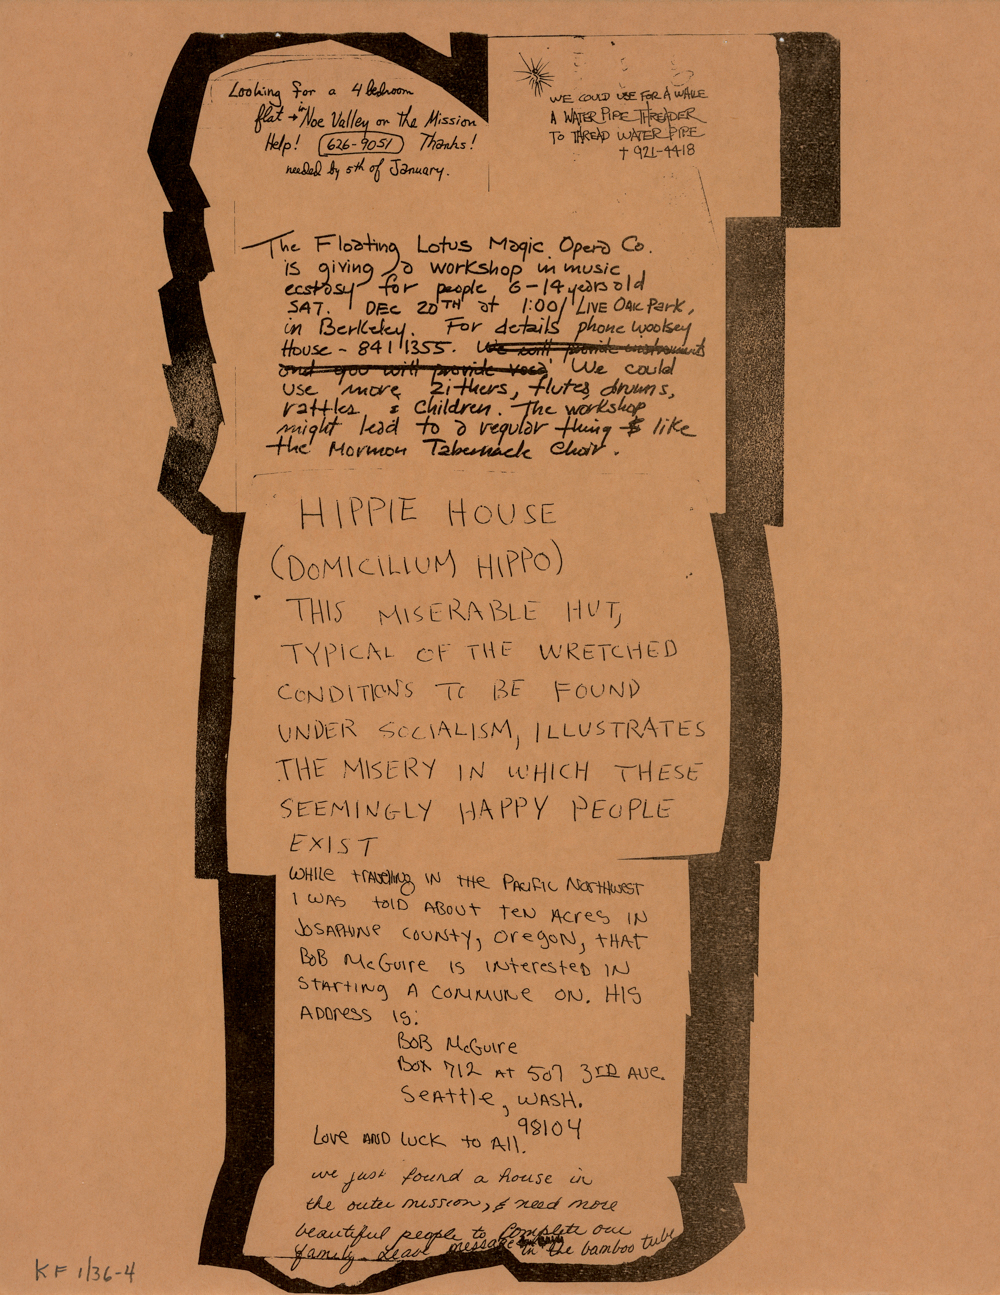 Looking for a 4 bedroom
flat → in Noe Valley or the Mission
Help! 626-9051 Thanks!
needed by 5th of January.
WE COULD USE FOR A WHILE
A WATER PIPE THREADER
TO THREAD WATER PIPE
† 921-4418
The Floating Lotus Magic Opera Co.
is giving a workshop in music
ecstasy for people 6-14 years old
SAT. DEC 20TH at 1:00/ LIVE OAK PARK,
in Berkeley. For details phone Woolsey
House - 841 1355. We will provide instruments
and you will provide We could
use more zithers, flutes drums,
rattles & children. The workshop
might lead to a regular thing like
the Mormon Tabernacle Choir.
HIPPIE HOUSE
(DOMICILIUM HIPPO)
THIS MISERABLE HUT,
TYPICAL OF THE WRETCHED
CONDITIONS TO BE FOUND
UNDER SOCIALISM, ILLUSTRATES
THE MISERY IN WHICH THESE
SEEMINGLY HAPPY PEOPLE
EXIST
WHILE TRAVELLING IN THE PACIFIC NORTHWEST
I WAS TOLD ABOUT TEN ACRES IN
JOSAPHINE COUNTY, OREGON, THAT
BOB McGUIRE IS INTERESTED IN
STARTING A COMMUNE ON. HIS
ADDRESS IS:
BOB McGUIRE
BOX 712 AT 507 3RD AVE.
SEATTLE, WASH.
98104
LOVE AND LUCK TO ALL.
we just found a house in
the outer mission, & need more
beautiful people to complete our
family. Leave message in the bamboo tube
KF 1/36-4